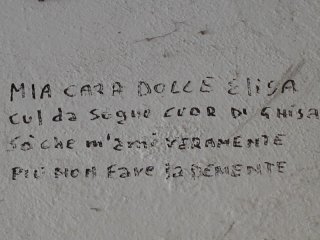 MIA CARA DOLCE ELISA
CUL da SOGNO CUOR DI GHISA
SO CHE m'ami VERAMENTE
PIÙ NON FARE la DEMENTE